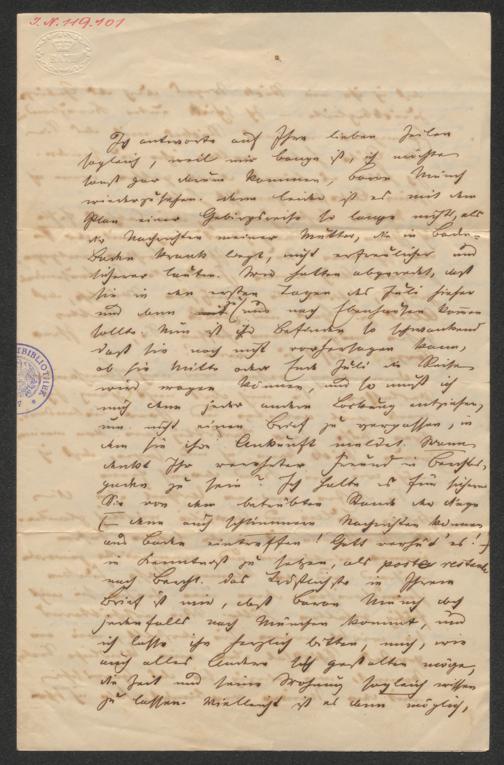 I.N. 119.101
BATH
Ich antworte auf Ihre lieben Zeilen
sogleich, weil mir bange ist, ich möchte
sonst gar darum kommen, Baron Münch
wiederzusehen. Denn leider ist es mit dem
Plan einer Gebirgsreise so lange nichts, als
die Nachrichten meiner Mutter, die in Baden-
Baden krank liegt, nicht erfreulicher und
sicherer lauten. Wir hatten abgeredet, daß
sie in den ersten Tagen des Juli hieher
und dann mit (uns nach Ebenhausen kommen
sollte. Nun ist ihr Befinden so schwankend
daß sie noch nicht vorhersagen kann,
ob sie Mitte oder Ende Juli die Reise
wird wagen können, und so muß ich
mich denn jeder andern Lockung entziehen,
um nicht einen Brief zu verpassen, in
dem sie ihre Ankunft meldet. Wann
denkt Ihr verehrter Freund in Berchtes-
gaden zu sein? Ich halte es für sicherer
Sie von dem betrübten Stande der Dinge
(– denn auch schlimmere Nachrichten können
aus Baden eintreffen! Gott verhüt' es! –)
in Kenntniß zu setzen, als poste restante
nach Bercht. Das Tröstlichste in Ihrem
Brief ist mir, daß Baron Münch doch
jedenfalls nach München kommt, und
ich lasse ihn herzlich bitten, mich, wie
auch alles Andere sich gestalten möge,
die Zeit und seine Wohnung sogleich wissen
zu lassen. Vielleicht ist es dann möglich,
BIBLIOTHEK